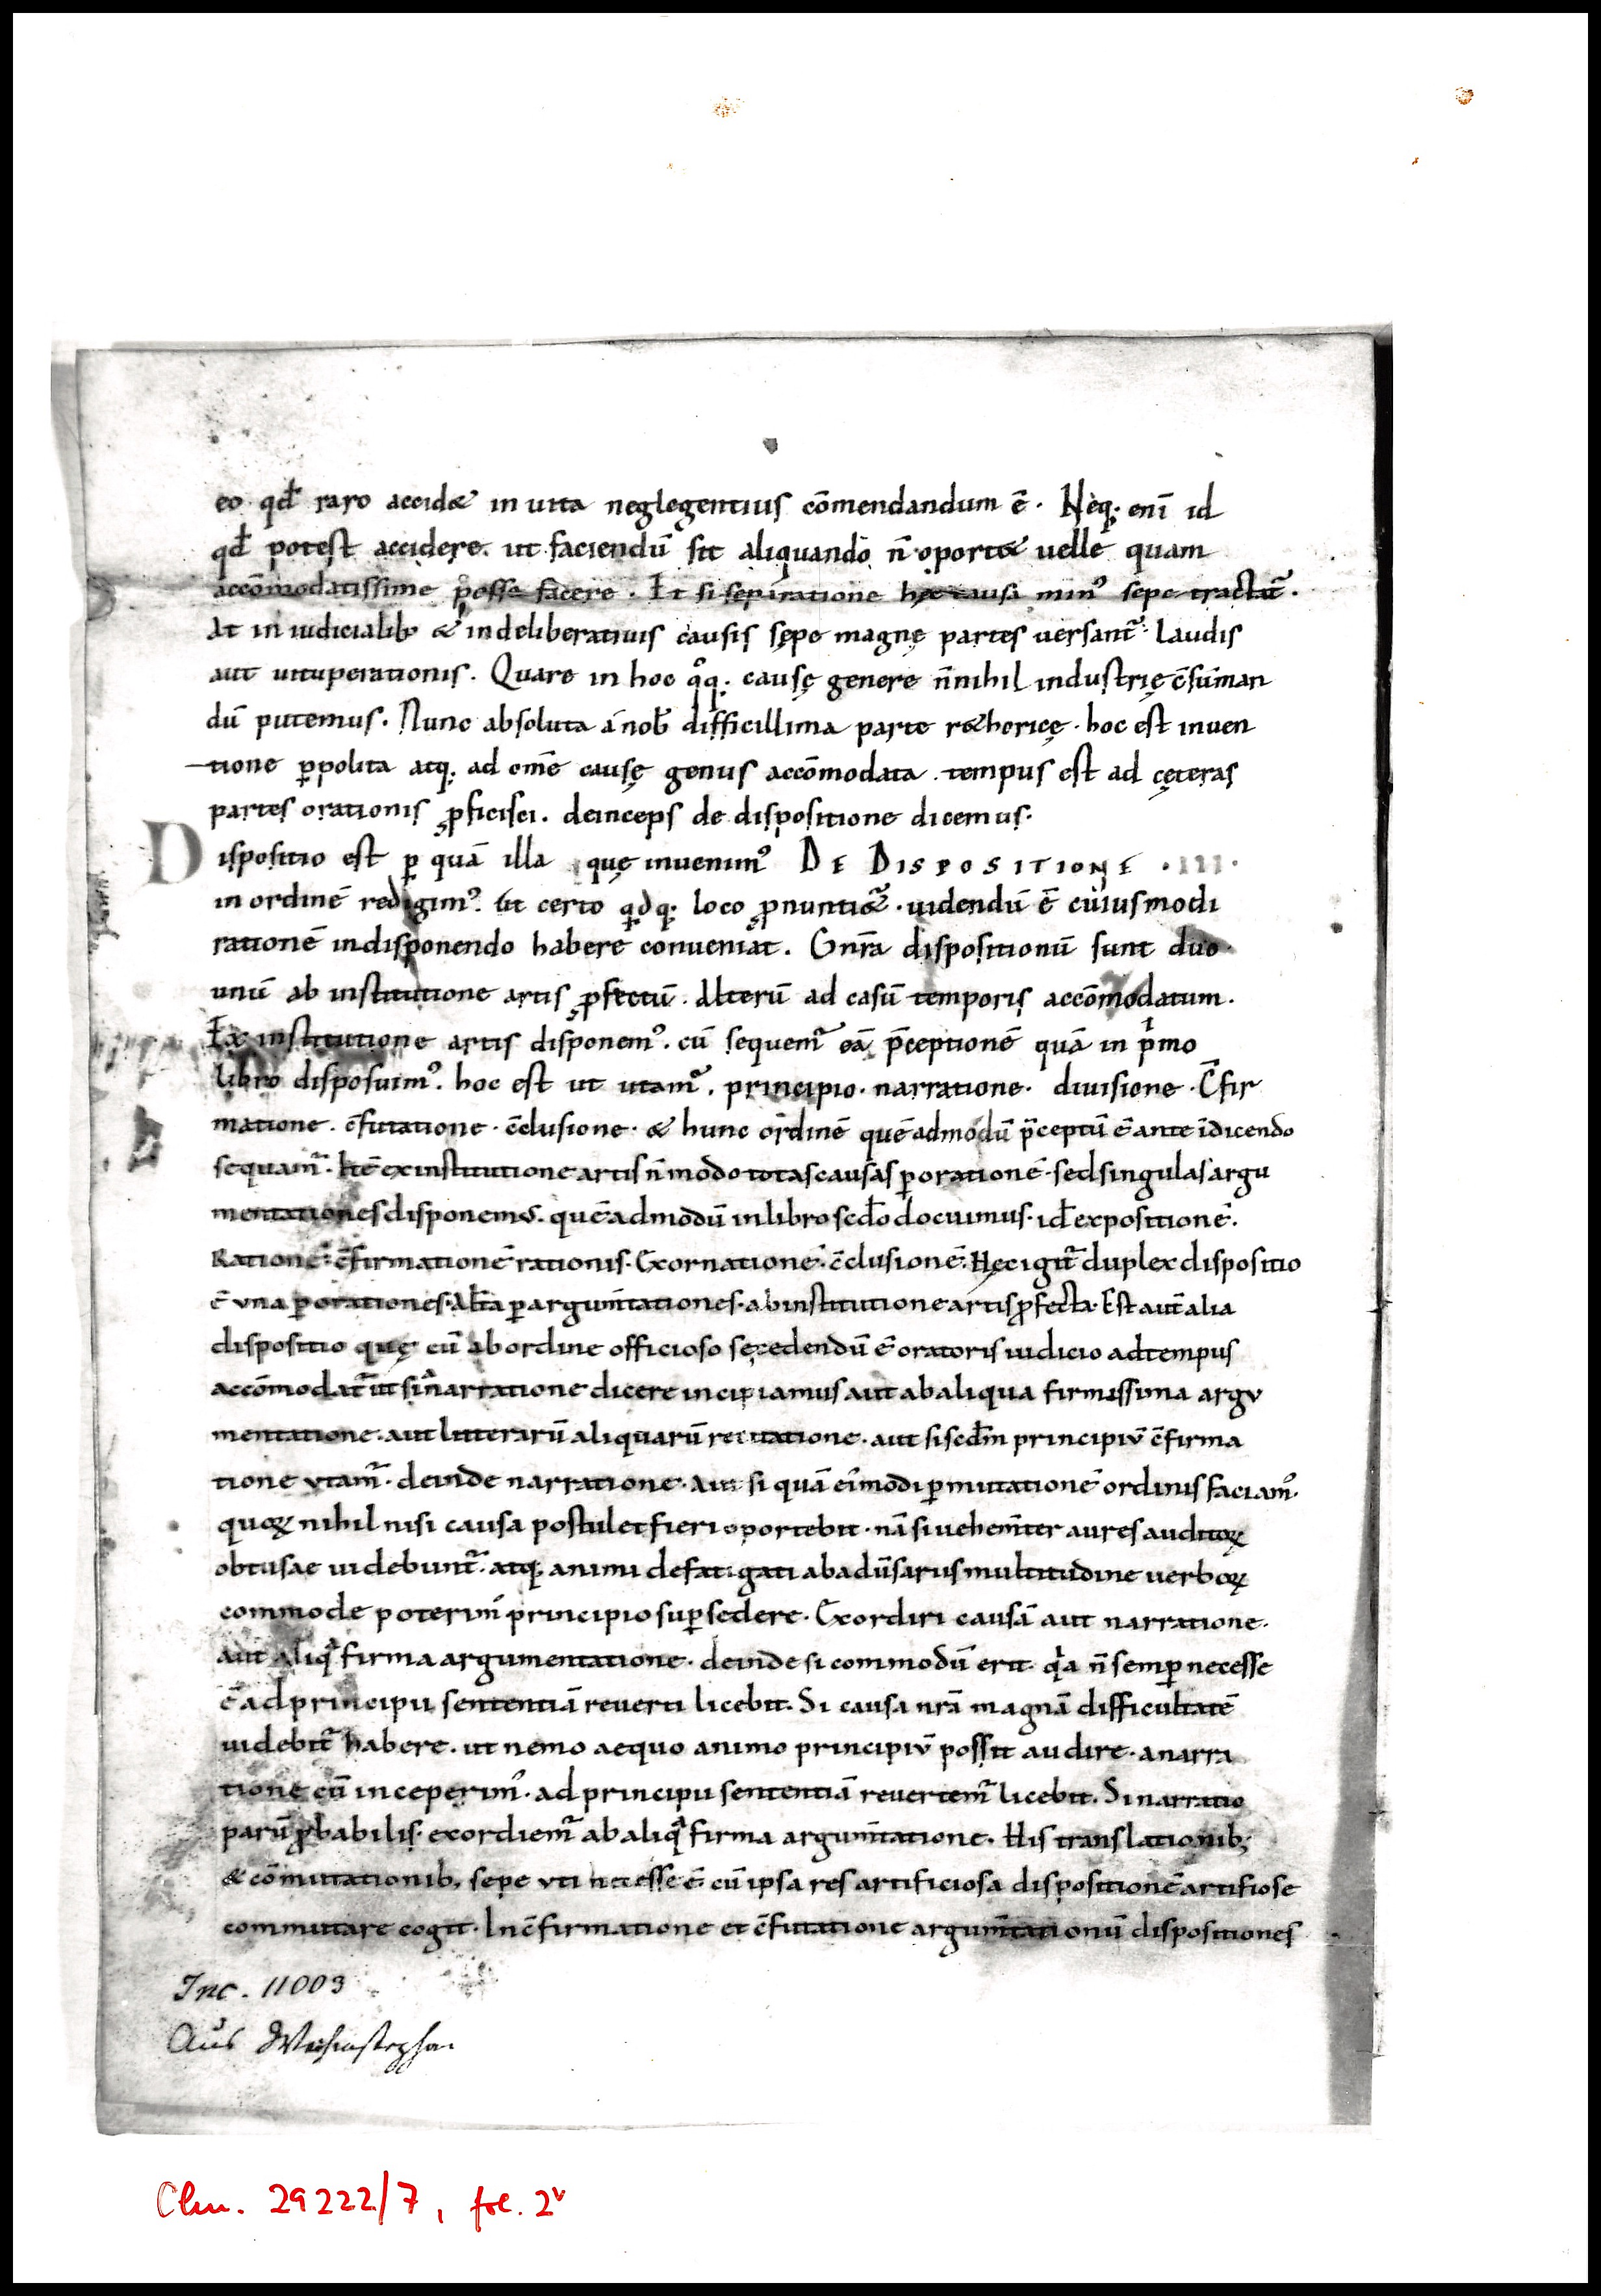 eo qđ raro accid& in uita neglegentius cōmendandum ē. Neq; eni id
qđ potest accidere. ut faciendū sit aliquando n̄ oport& uelle quam
accōmodatissime posse facere. Et si separatione hęc causa min᾽ sepe tractat̃.
At in iudicialib; & indeliberatiuis causis sępe magnę partes uersant̃ laudis
aut uituperationis. Quare in hoc q°q; causę genere n̄nihil industrię c̄summan
dū putemus. Nunc absoluta a nob̄ difficillima parte r&horicę. hoc est inuen
tione p̱polita atq; ad omē causę genus accōmodata. tempus est ad cęteras
partes orationis ꝓficisci. deinceps de dispositione dicemus.
Dispositio est ꝑ quā illa quę inuenim᾽ DE DISPOSITIONE .III.
in ordinē redigim᾽. ut certo qͥdq; loco ꝓnunti&̃. uidendū ē cuiusmodi
rationē indisponendo habere conueniat. Gnr̄a dispositionū sunt duo
unū ab institutione artis ꝓfectū. Alterū ad casū temporis accōmodatum.
Ex institutione artis disponem᾽. cū sequem̃ eā p̄ceptionē quā in pͥmo
libro disposuim᾽. hoc est ut utam̃. principio. narratione. diuisione. C̄fir
matione. c̄futatione. c̄clusione. & hunc ordinē quēadmodū p̄ceptū ē ante īdicendo
sequam̃. Itē ex institutione artis n̄ modo totas causas ꝑ orationē. sed singulas argu
mentationes disponem᾽. quēadmodū in libro scđo docuimus. id ē expositionē.
Rationē. c̄firmationē rationis. Exornationē. c̄clusionē. Hęc igit̃ duplex dispositio
ē vna ꝑ orationes. Alt̄a ꝑ argum̄tationes. ab institutione artis ꝓfecta. Est aut̄ alia
dispositio quę cū ab ordine officioso secedendū ē oratoris iudicio ad tempus
accōmodat̃ ut si narratione dicere incipiamus aut ab aliqua firmissima argu
mentatione. aut litterarū aliquarū recitatione. aut si secđm principiū c̄firma
tione vtam̃. deinde narratione. Aut si quā ei᾽modi ꝑmutationē ordinis faciam᾽.
quoꝝ nihil nisi causa postulet fieri oportebit. nā si uehem̄ter aures auditoꝝ
obtusae uidebunt̃. atq; animi defatigati ab aduersariis multitudine uerboꝝ
commode poterim᾽ principio suꝑsedere. Exordiri causā aut narratione.
aut aliqᵃ firma argumentatione. deinde si commodū erit. qͥa n̄ semꝑ necesse
ē ad principii sententiā reuerti licebit. Si causa nr̄a magnā difficultatē
uidebit̃ habere. ut nemo aequo animo principiū possit audire. a narra
tione cū inceperim᾽. ad principii sententiā reuertem̃ licebit. Si narratio
parū ꝓbabilis. exordiem̃ ab aliqᵃ firma argum̄tatione. His translationib;
& cōmutationib; sepe vti necesse ē cū ipsa res artificiosa dispositionē artifiose
commutare cogit. In c̄firmatione et c̄futatione argum̄tationū dispositiones
Inc. 11003
Aus Weihenstephan
Clm. 29222/7, fol. 2ᵛ